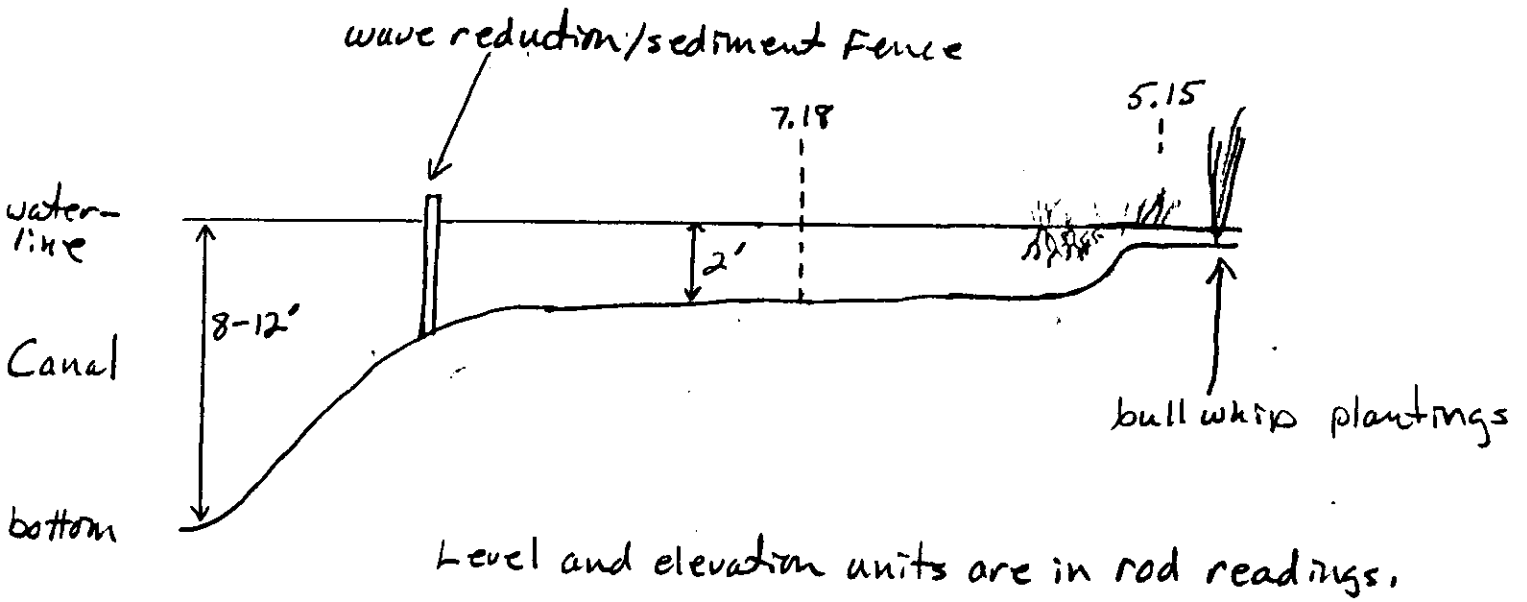 wave reduction/sediment Fence
5.15
7.18
water-
line
2'
8-12'
Canal
bullwhip plantings
bottom
Level and elevation units are in rod readings.